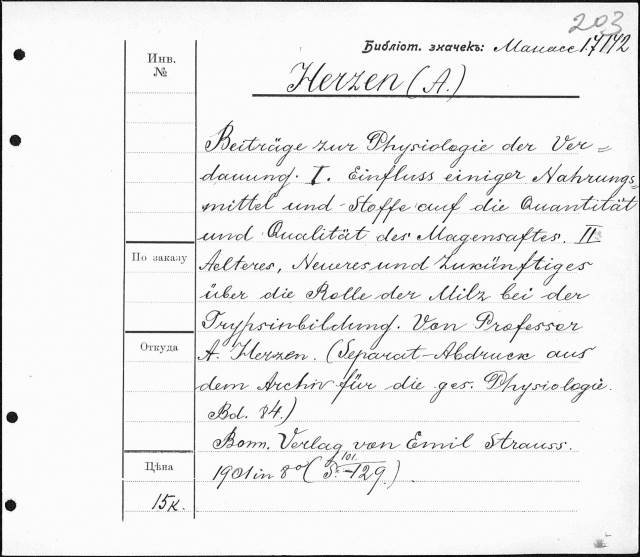 203
Библіот. значекъ: Манасс 17172
Инв.
№
Herzen (A.)
Beiträge zur Physiologie der Ver=
dauung. I. Einfluss einiger Nahrungs=
mittel und -Stoffe auf die Quantität
und Qualität des Magensaftes. II
По заказу
Aelteres, Neueres und Zukünftiges
über die Rolle der Milz bei der
Trypsinbildung. Von Professor
Откуда
A. Herzen. (Separat-Abdruck aus
dem Archiv für die ges. Physiologie.
Bd. 84.)
Bonn. Verlag von Emil Strauss.
Цѣна
1901 in 8° (S. 101-129.)
15к.